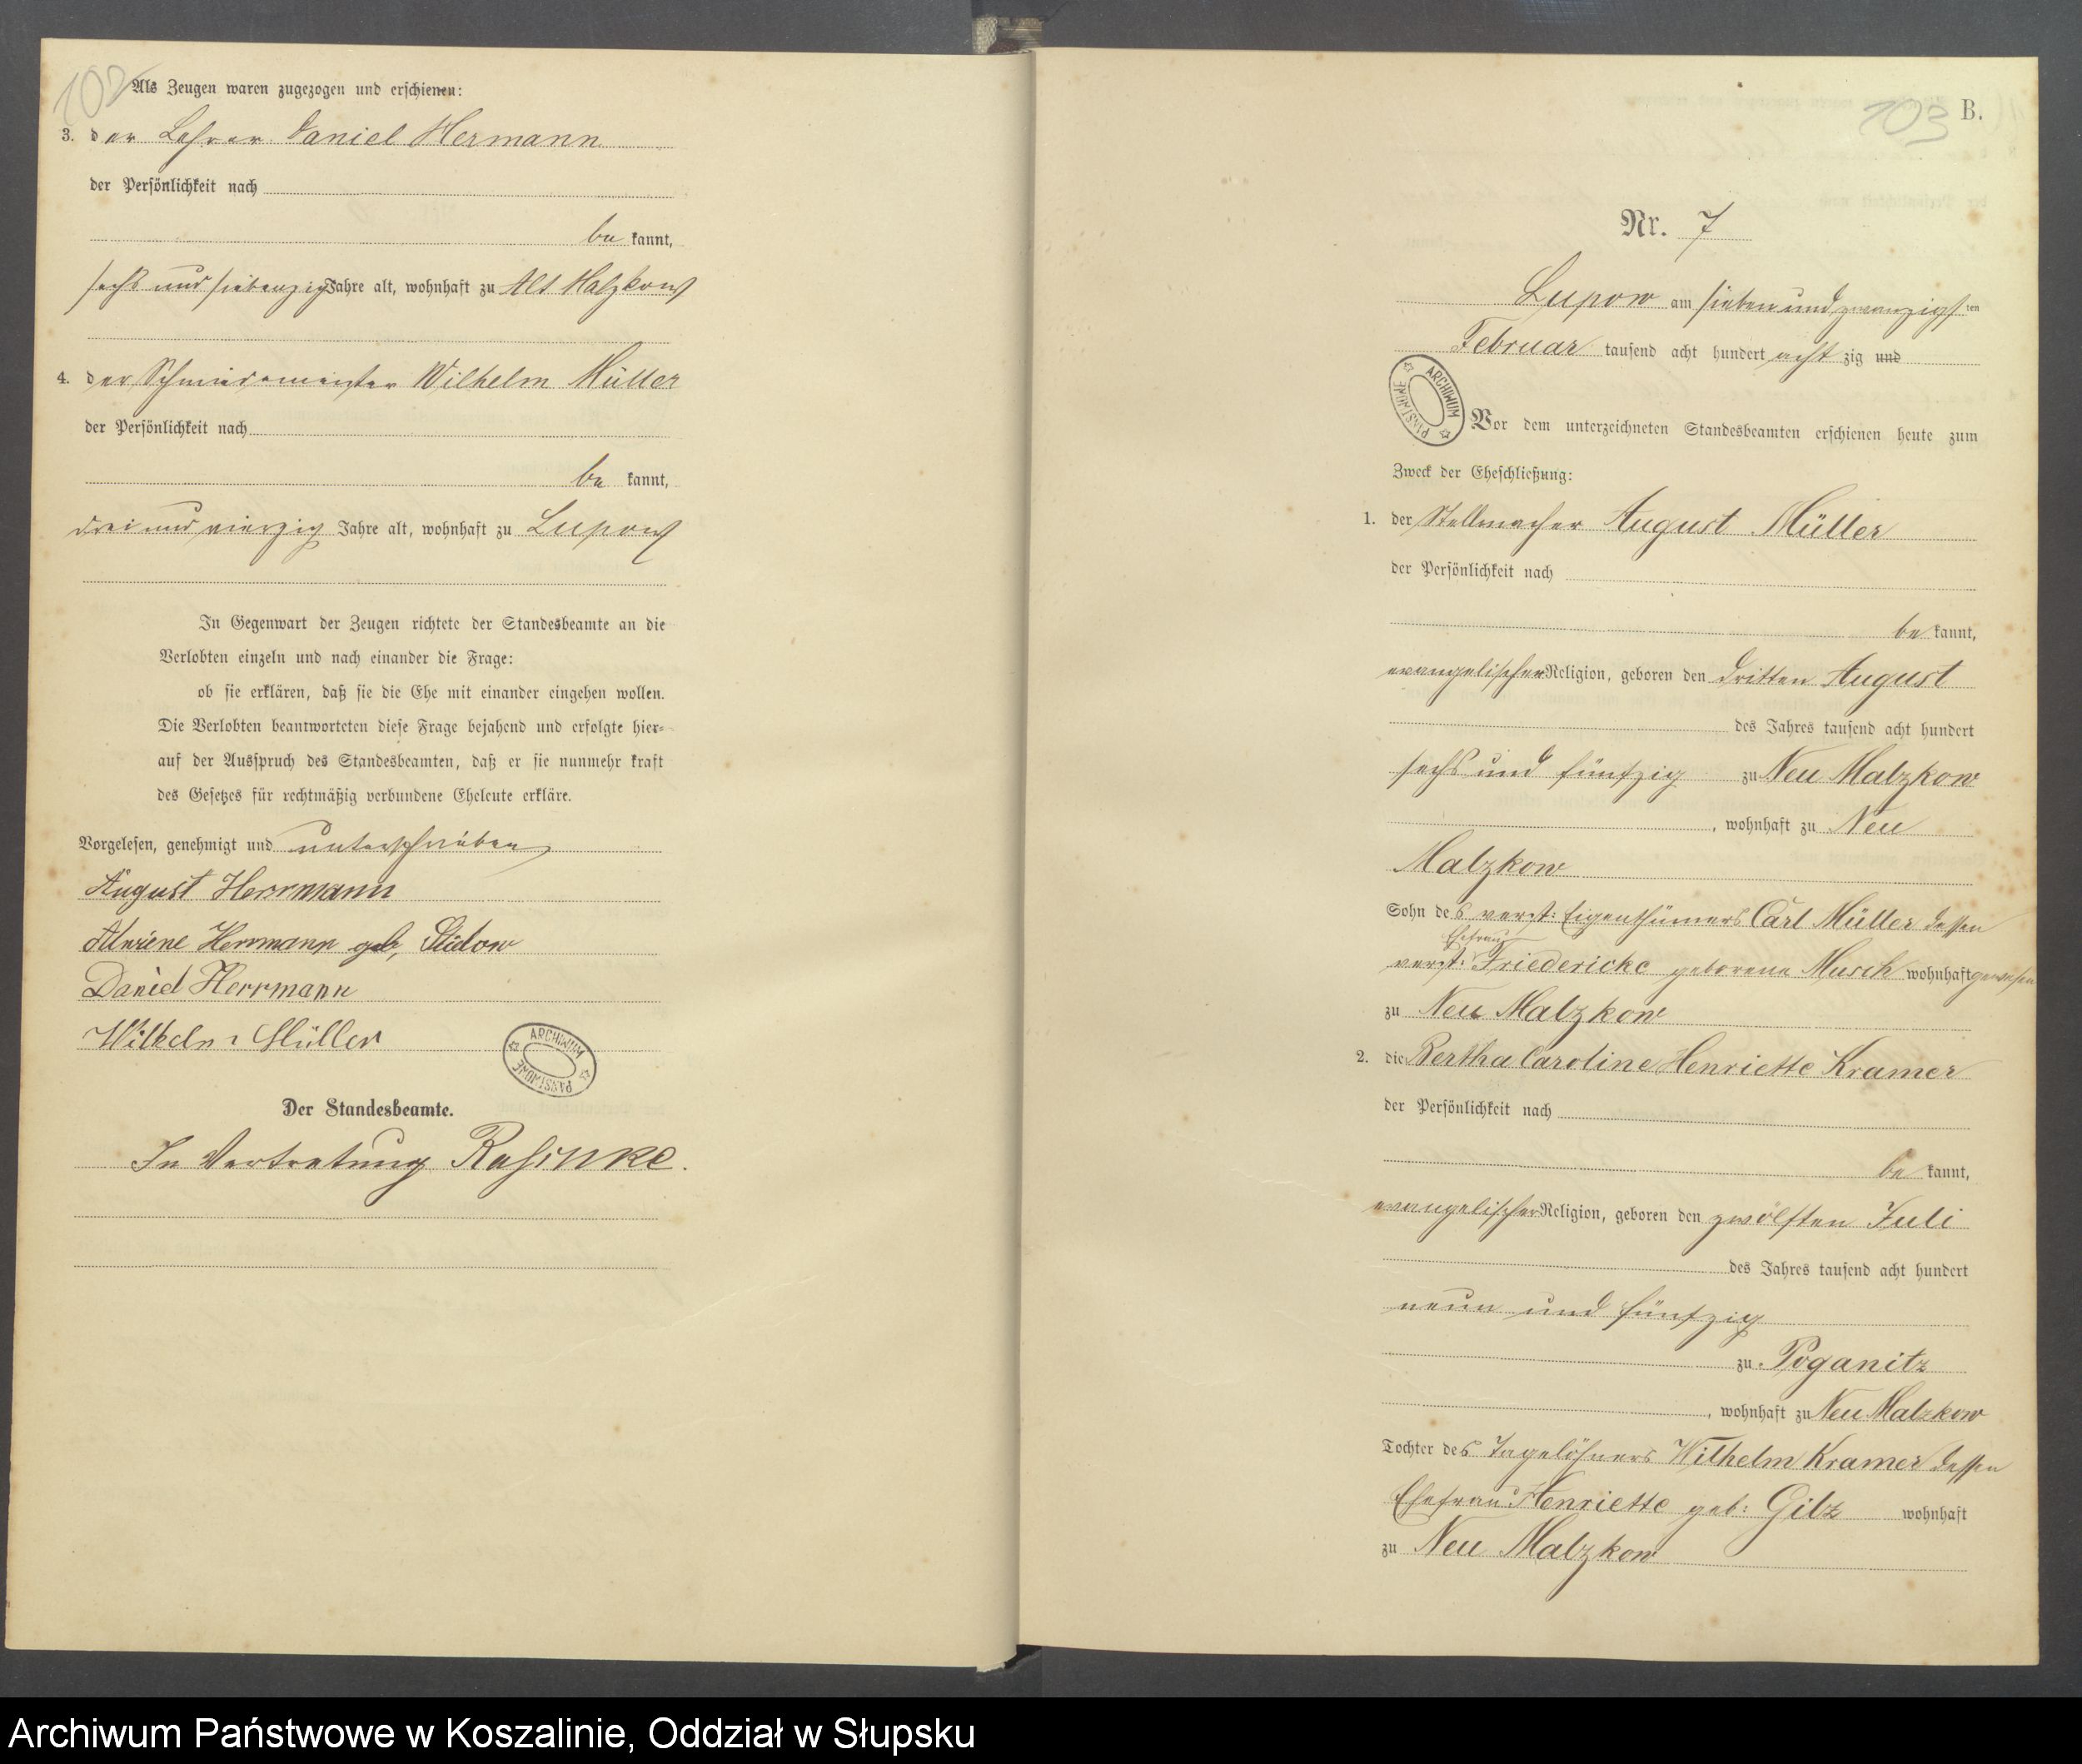 102
Als Zeugen waren zugezogen und erschienen:
3. der Lehrer Daniel Hermann
der Persönlichkeit nach
be kannt,
sechs und siebenzig Jahre alt, wohnhaft zu Alt Malzkow
4. der Schmiedemeister Wilhelm Müller
der Persönlichkeit nach
be kannt,
drei und vierzig Jahre alt, wohnhaft zu Lupow
In Gegenwart der Zeugen richtete der Standesbeamte an die
Verlobten einzeln und nach einander die Frage:
ob sie erklären, daß sie die Ehe mit einander eingehen wollen.
Die Verlobten beantworteten diese Frage bejahend und erfolgte hier-
auf der Ausspruch des Standesbeamten, daß er sie nunmehr kraft
des Gesetzes für rechtmäßig verbundene Eheleute erkläre.
Vorgelesen, genehmigt und unterschrieben
August Herrmann
Herrmann geb,
Daniel Herrmann
Wilhelm Müller
ARCHIWUM PAŃSTWOWE
Der Standesbeamte.
In Vertretung
103 B.
Nr. 7
Lupow am sieben und zwanzigsten
Februar tausend acht hundert acht zig und
ARCHIWUM PAŃSTWOWE
Vor dem unterzeichneten Standesbeamten erschienen heute zum
Zweck der Eheschließung:
1. der Stellmacher August Müller
der Persönlichkeit nach
be kannt,
evangelischer Religion, geboren den dritten August
des Jahres tausend acht hundert
sechs und fünfzig zu Neu Malzkow
, wohnhaft zu Neu
Malzkow
Sohn des verst: Eigenthümers Carl Müller dessen
Ehefrau
verst: Friedericke geborene Musch wohnhaft gewesen
zu Neu Malzkow
2. die Bertha Caroline Henriette Kramer
der Persönlichkeit nach
be kannt,
evangelischer Religion, geboren den zwölften Juli
des Jahres tausend acht hundert
neun und fünfzig
zu Poganitz
, wohnhaft zu Neu Malzkow
Tochter des Tagelöhners Wilhelm Kramer dessen
Ehefrau Henriette geb: Gilz wohnhaft
zu Neu Malzkow
Archiwum Państwowe w Koszalinie, Oddział w Słupsku